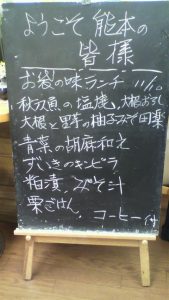 ようこそ 熊本の
皆様
お袋の味ランチ 11/10
秋刀魚の塩焼、大根おろし
大根と里芋の柚子みそ田楽
青菜の胡麻和え
ずいきのキンピラ
粕漬、みそ汁
栗ごはん、コーヒー